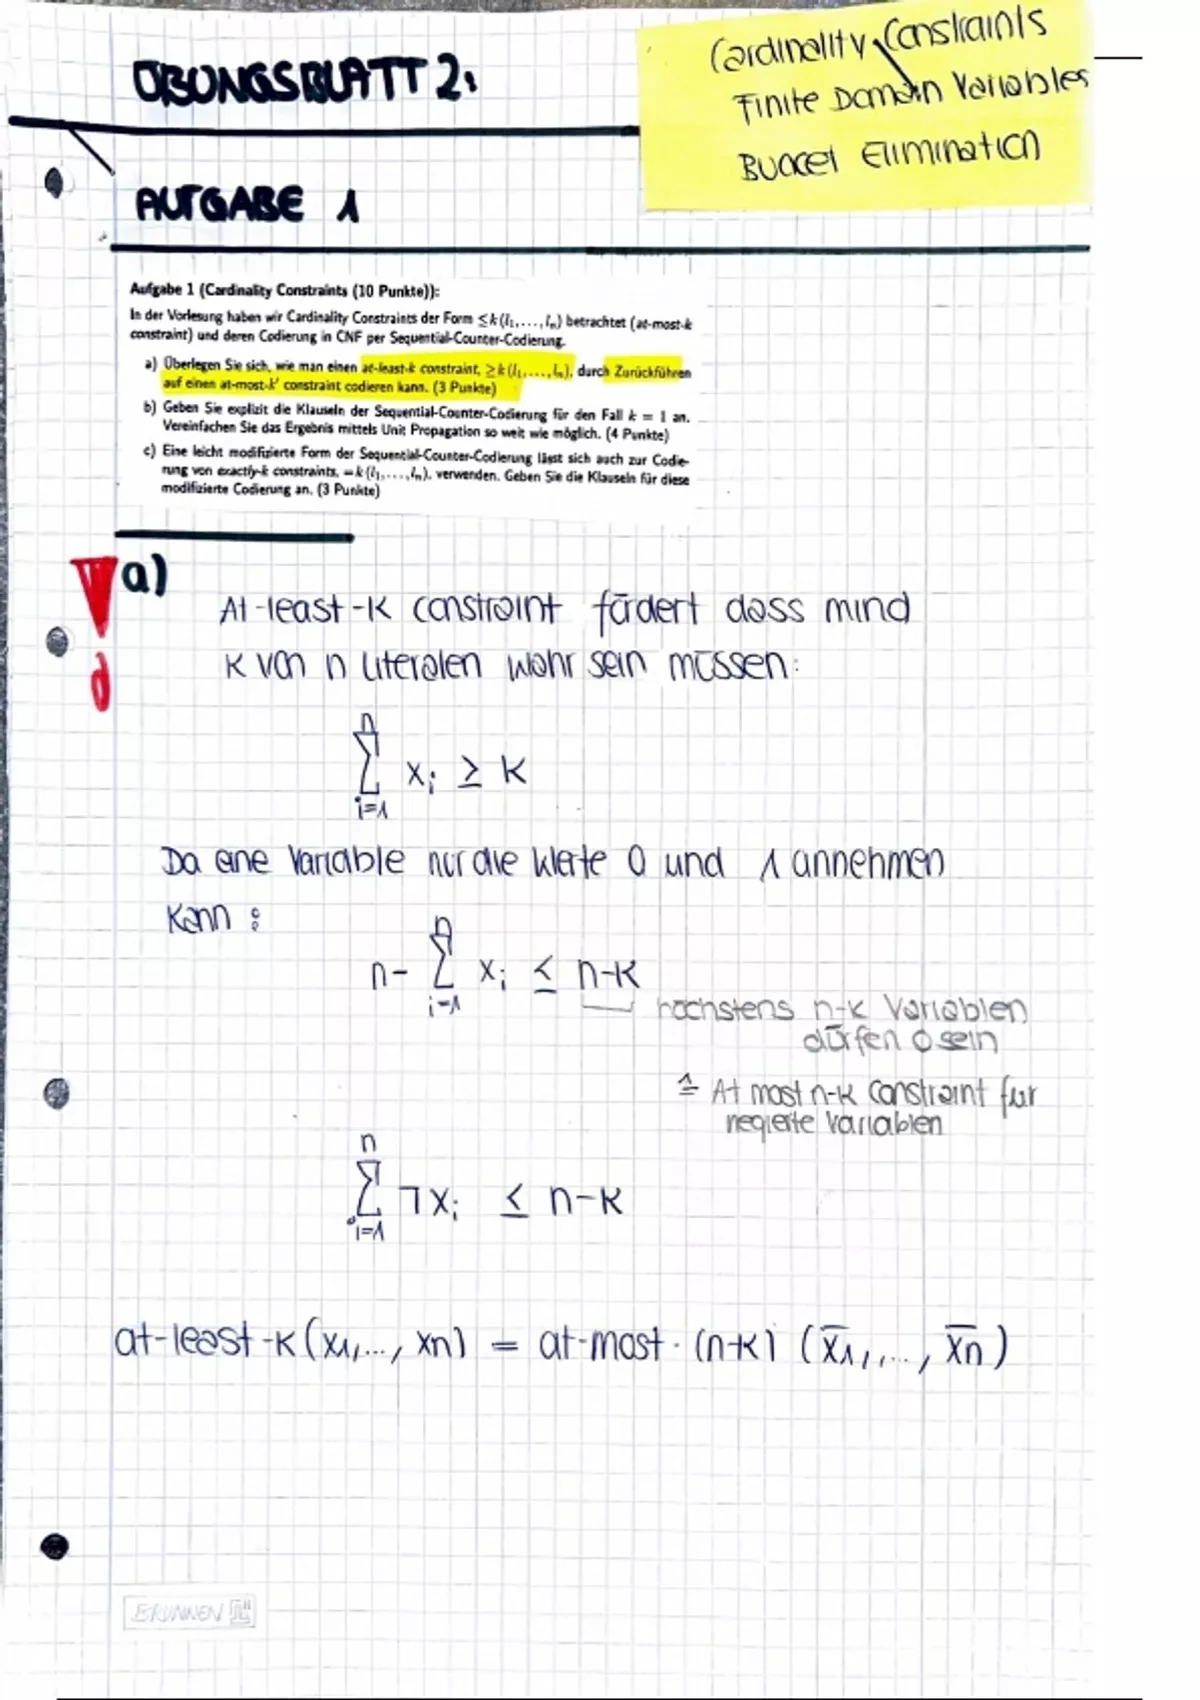 ÜBUNGSBLATT 2:
Cardinality Constraints
Finite Domain Variables
Bucket Elimination
AUFGABE 1
Aufgabe 1 (Cardinality Constraints (10 Punkte)):
In der Vorlesung haben wir Cardinality Constraints der Form ≤k(l₁,...,lₙ) betrachtet (at-most-k
constraint) und deren Codierung in CNF per Sequential-Counter-Codierung.
a) Überlegen Sie sich, wie man einen at-least-k constraint, ≥k(l₁,...,lₙ), durch Zurückführen
auf einen at-most-k' constraint codieren kann. (3 Punkte)
b) Geben Sie explizit die Klauseln der Sequential-Counter-Codierung für den Fall k = 1 an.
Vereinfachen Sie das Ergebnis mittels Unit Propagation so weit wie möglich. (4 Punkte)
c) Eine leicht modifizierte Form der Sequential-Counter-Codierung lässt sich auch zur Codie-
rung von exactly-k constraints, =k(l₁,...,lₙ), verwenden. Geben Sie die Klauseln für diese
modifizierte Codierung an. (3 Punkte)
a)
At-least-k constraint fordert dass mind
k von n Literalen wahr sein müssen:
n
∑ xᵢ ≥ k
i=1
Da eine Variable nur die Werte 0 und 1 annehmen
kann :
n
n- ∑ xᵢ ≤ n-k
i=1
höchstens n-k Variablen
dürfen 0 sein
≙ At most n-k constraint für
negierte Variablen
n
∑ ¬xᵢ ≤ n-k
i=1
at-least-k (x1,..., xn) = at-most-(n-k) (x̅1,,..., x̅n)
BRUNNEN